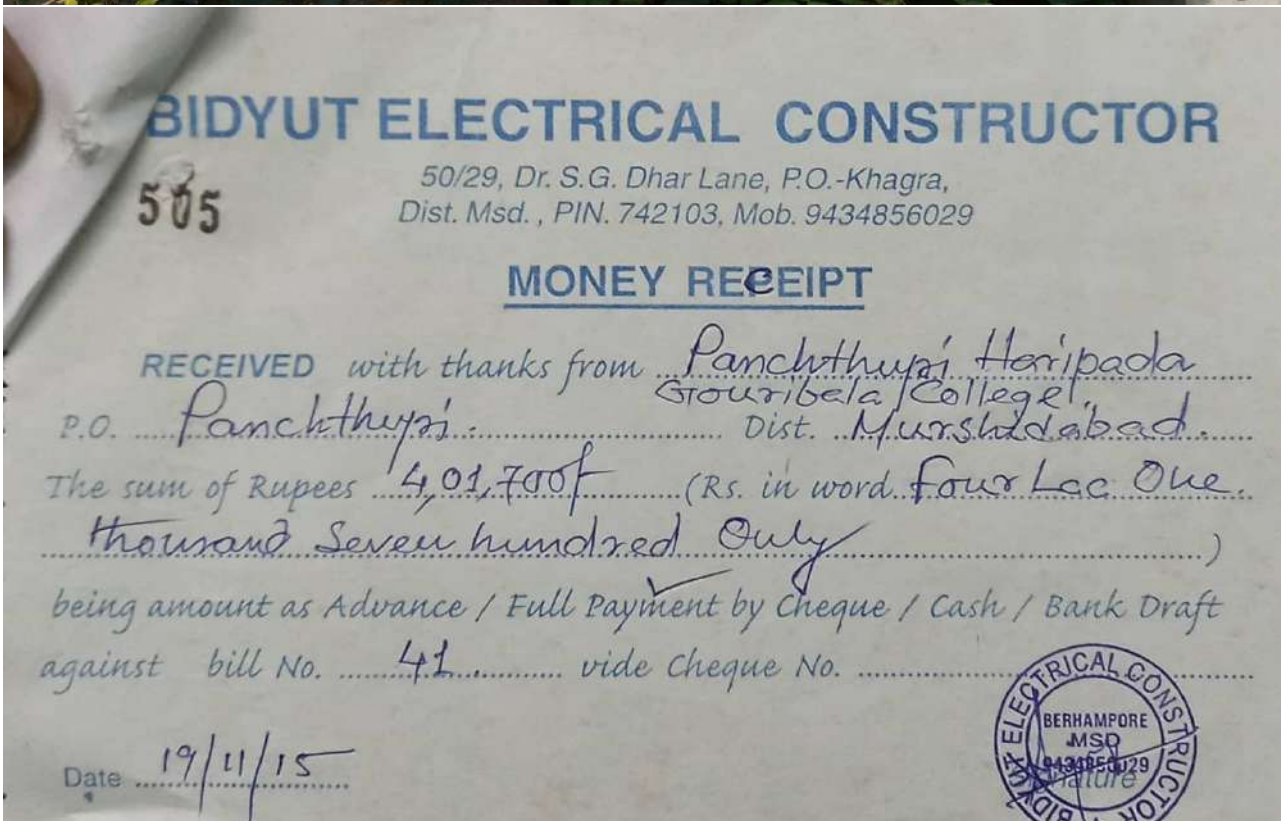 BIDYUT ELECTRICAL CONSTRUCTOR
505
50/29, Dr. S.G. Dhar Lane, P.O.-Khagra,
Dist. Msd. , PIN. 742103, Mob. 9434856029
MONEY RECEIPT
RECEIVED with thanks from Panchthupi Haripada
Gouribala College.
P.O. Panchthupi. Dist. Murshidabad.
The sum of Rupees 4,01,700/- (Rs. in word Four Lac One
thousand Seven hundred Only )
being amount as Advance / Full Payment by Cheque / Cash / Bank Draft
against bill No. 41 vide Cheque No.
Date 19/11/15
BIDYUT ELECTRICAL CONSTRUCTOR
BERHAMPORE
MSD
Signature